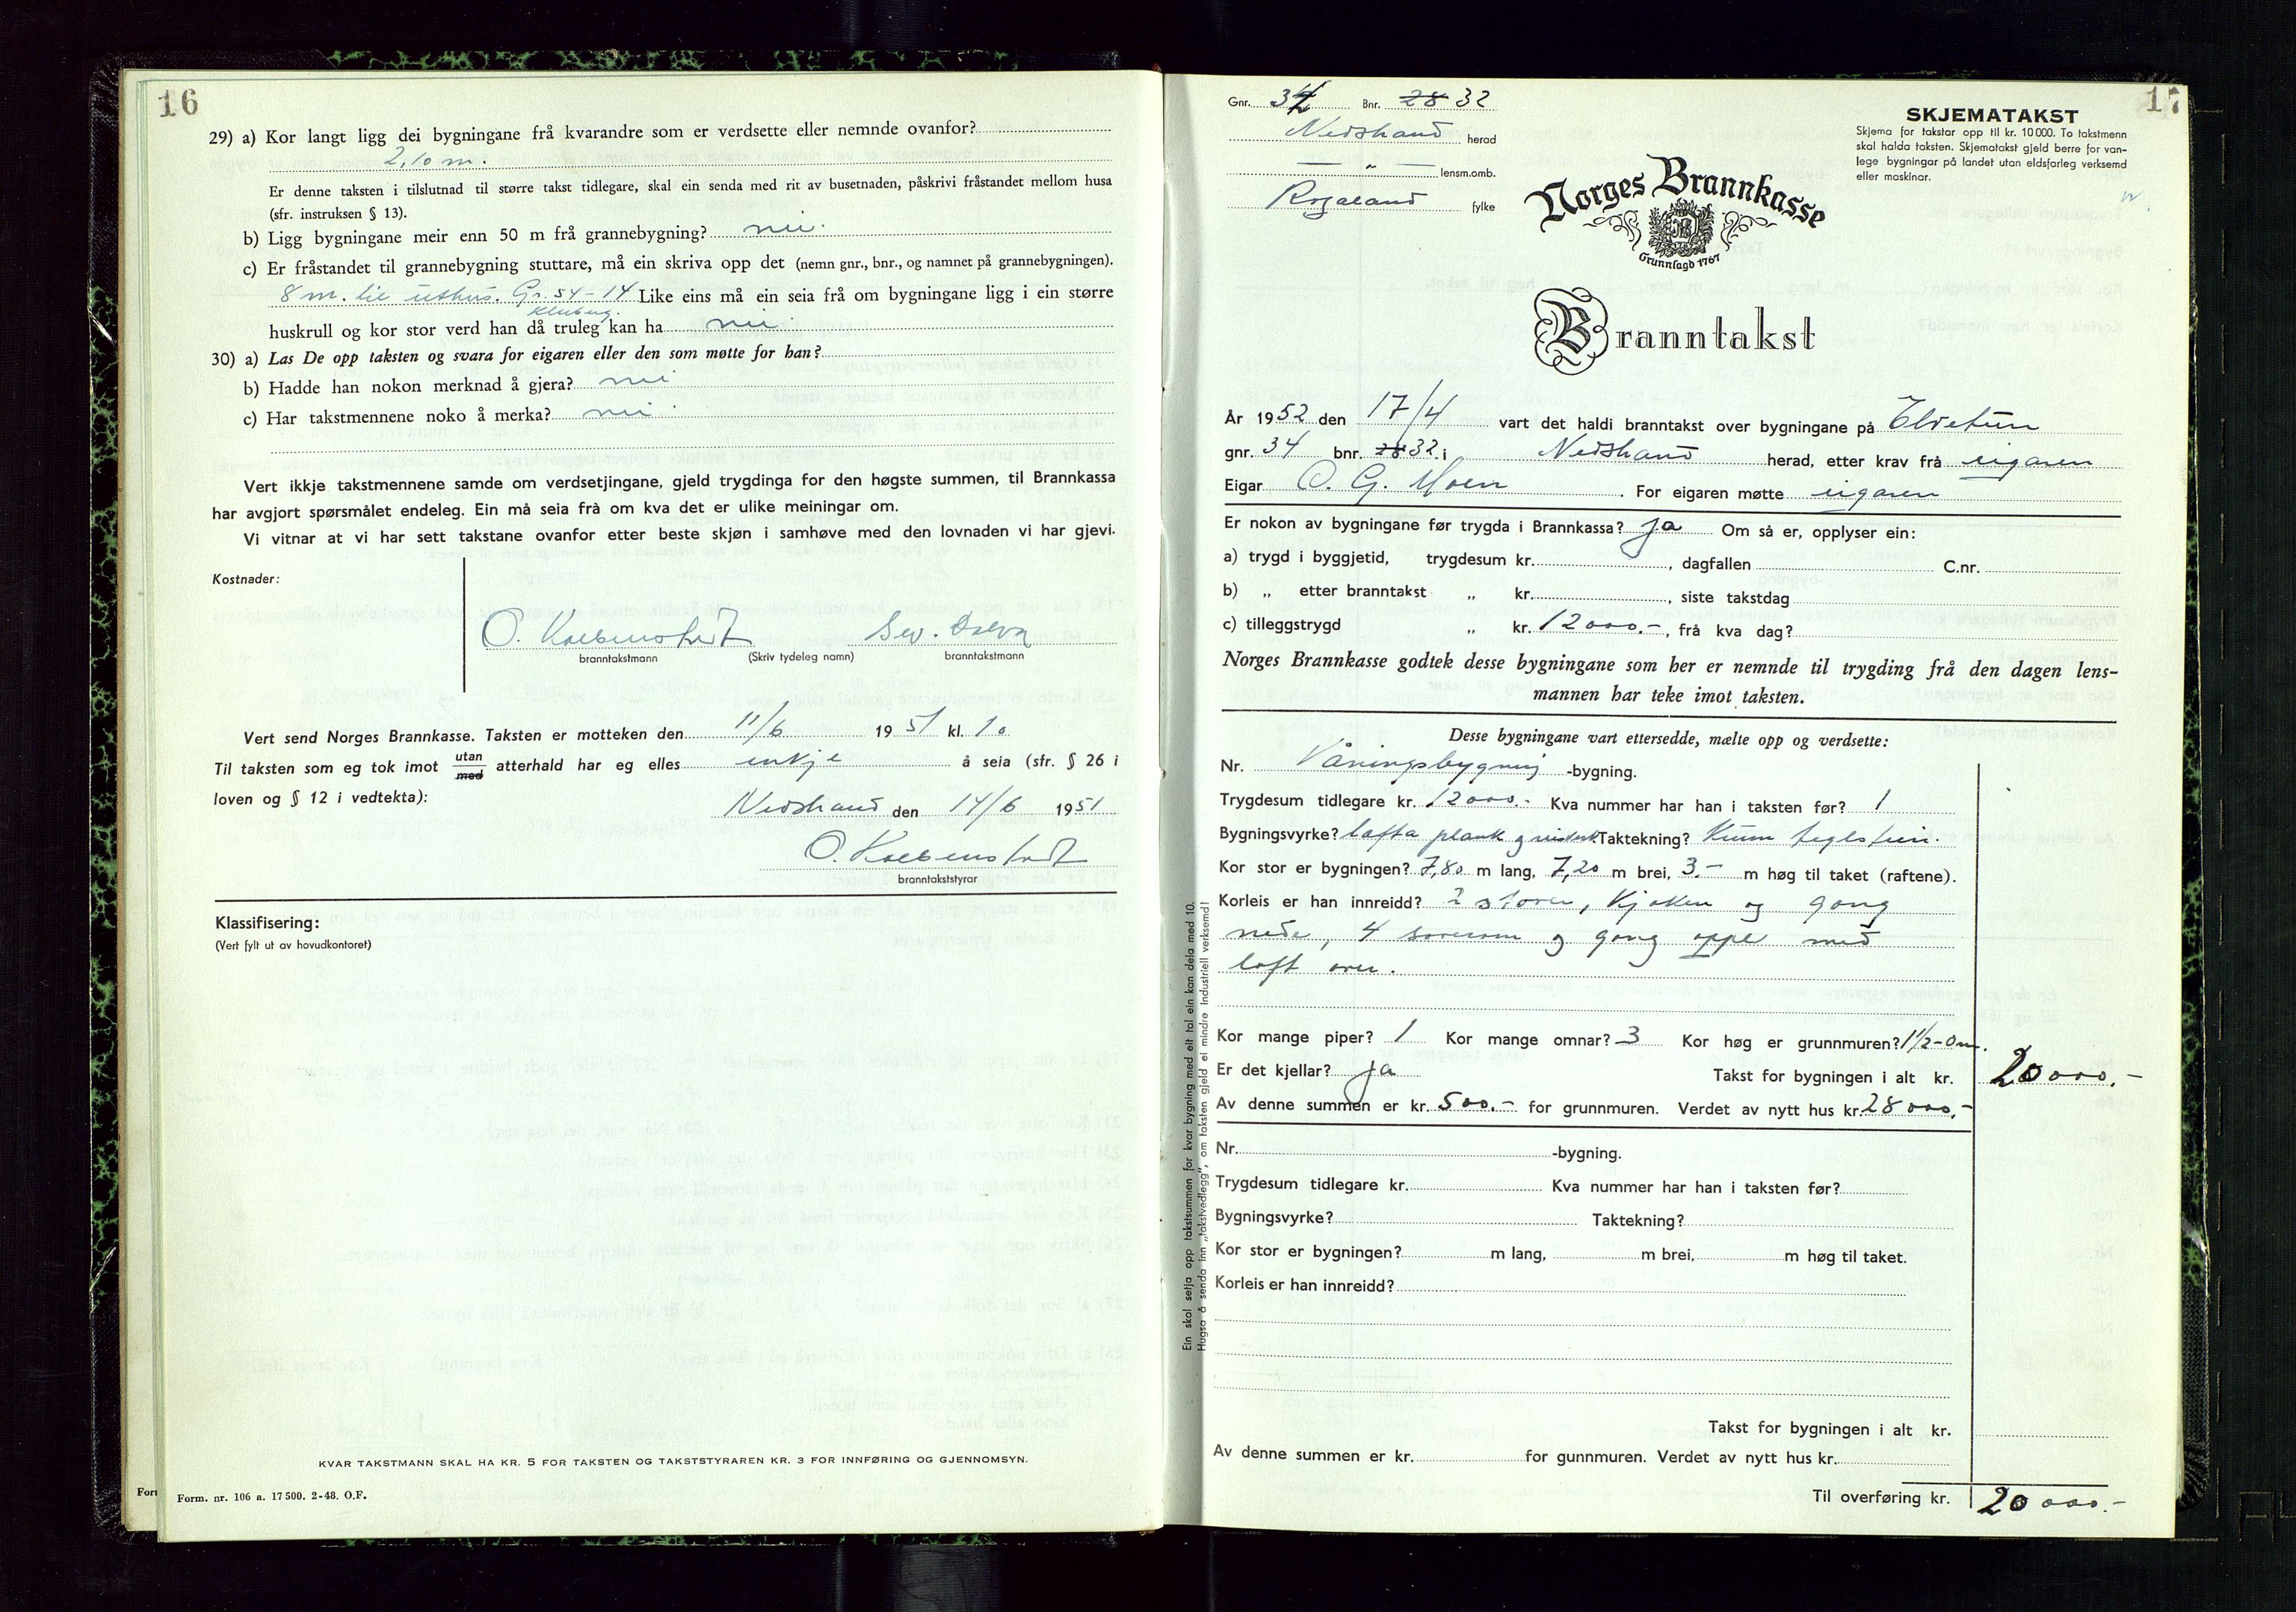 16
29) a) Kor langt ligg dei bygningane frå kvarandre som er verdsette eller nemnde ovanfor?
2,10 m.
Er denne taksten i tilslutnad til større takst tidlegare, skal ein senda med rit av busetnaden, påskrivi fråstandet mellom husa
(sfr. instruksen § 13).
b) Ligg bygningane meir enn 50 m frå grannebygning? nei.
c) Er fråstandet til grannebygning stuttare, må ein skriva opp det (nemn gnr., bnr., og namnet på grannebygningen).
8 m. til uthus. Gr. 54-14 Like eins må ein seia frå om bygningane ligg i ein større
huskrull og kor stor verd han då truleg kan ha nei.
30) a) Las De opp taksten og svara for eigaren eller den som møtte for han?
b) Hadde han nokon merknad å gjera? nei
c) Har takstmennene noko å merka? nei.
Vert ikkje takstmennene samde om verdsetjingane, gjeld trygdinga for den høgste summen, til Brannkassa
har avgjort spørsmålet endeleg. Ein må seia frå om kva det er ulike meiningar om.
Vi vitnar at vi har sett takstane ovanfor etter beste skjøn i samhøve med den lovnaden vi har gjevi.
Kostnader:
O.
branntakstmann (Skriv tydeleg namn) branntakstmann
Vert send Norges Brannkasse. Taksten er motteken den 11/6 1951 kl. 10
Til taksten som eg tok imot utan/med atterhald har eg elles inkje å seia (sfr. § 26 i
loven og § 12 i vedtekta):
Nedstrand den 14/6 1951
O.
branntakststyrar
Klassifisering:
(Vert fylt ut av hovudkontoret)
KVAR TAKSTMANN SKAL HA KR. 5 FOR TAKSTEN OG TAKSTSTYRAREN KR. 3 FOR INNFØRING OG GJENNOMSYN.
Form. nr. 106 a. 17500. 2-48. O.F.
17
Gnr. 34 Bnr. 28 32
Nedstrand herad
— " — lensm.omb.
Rogaland fylke
SKJEMATAKST
Skjema for takstar opp til kr. 10000. To takstmenn
skal halda taksten. Skjematakst gjeld berre for van-
lege bygningar på landet utan eldsfarleg verksemd
eller maskinar.
Norges Brannkasse
Grunnlagd 1767
Branntakst
År 1952 den 17/4 vart det haldi branntakst over bygningane på Elvetun
gnr. 34 bnr. 28 32. i Nedstrand herad, etter krav frå eigaren
Eigar O. G. Moen. For eigaren møtte eigaren
Er nokon av bygningane før trygda i Brannkassa? Ja Om så er, opplyser ein:
a) trygd i byggjetid, trygdesum kr. , dagfallen C.nr.
b) „ etter branntakst „ kr. , siste takstdag
c) tilleggstrygd „ kr. 12000.-, frå kva dag?
Norges Brannkasse godtek desse bygningane som her er nemnde til trygding frå den dagen lens-
mannen har teke imot taksten.
Desse bygningane vart ettersedde, mælte opp og verdsette:
Nr. Våningsbygning -bygning.
Trygdesum tidlegare kr. 12000.- Kva nummer har han i taksten før? 1
Bygningsvyrke? lafta plank og Taktekning? Krum teglstein.
Kor stor er bygningen? 7,80 m lang, 7,20 m brei, 3.- m høg til taket (raftene).
Korleis er han innreidd? 2 stover, Kjøken og gong
nede, 4 soverom og gong oppe med
loft over.
Kor mange piper? 1 Kor mange omnar? 3 Kor høg er grunnmuren? 1 1/2-0 m.
Er det kjellar? Ja Takst for bygningen i alt kr. 20000.-
Av denne summen er kr. 500.- for grunnmuren. Verdet av nytt hus kr. 28000.-
Nr. -bygning.
Trygdesum tidlegare kr. Kva nummer har han i taksten før?
Bygningsvyrke? Taktekning?
Kor stor er bygningen? m lang, m brei, m høg til taket.
Korleis er han innreidd?
Takst for bygningen i alt kr.
Av denne summen er kr. for gunnmuren. Verdet av nytt hus kr.
Til overføring kr. 20000.-
Ein skal setja opp takstsummen for kvar bygning med eit tal ein kan dela med 10.
Hugsa å senda inn „takstvedlegg", om taksten gjeld ei mindre industriell verksemd!